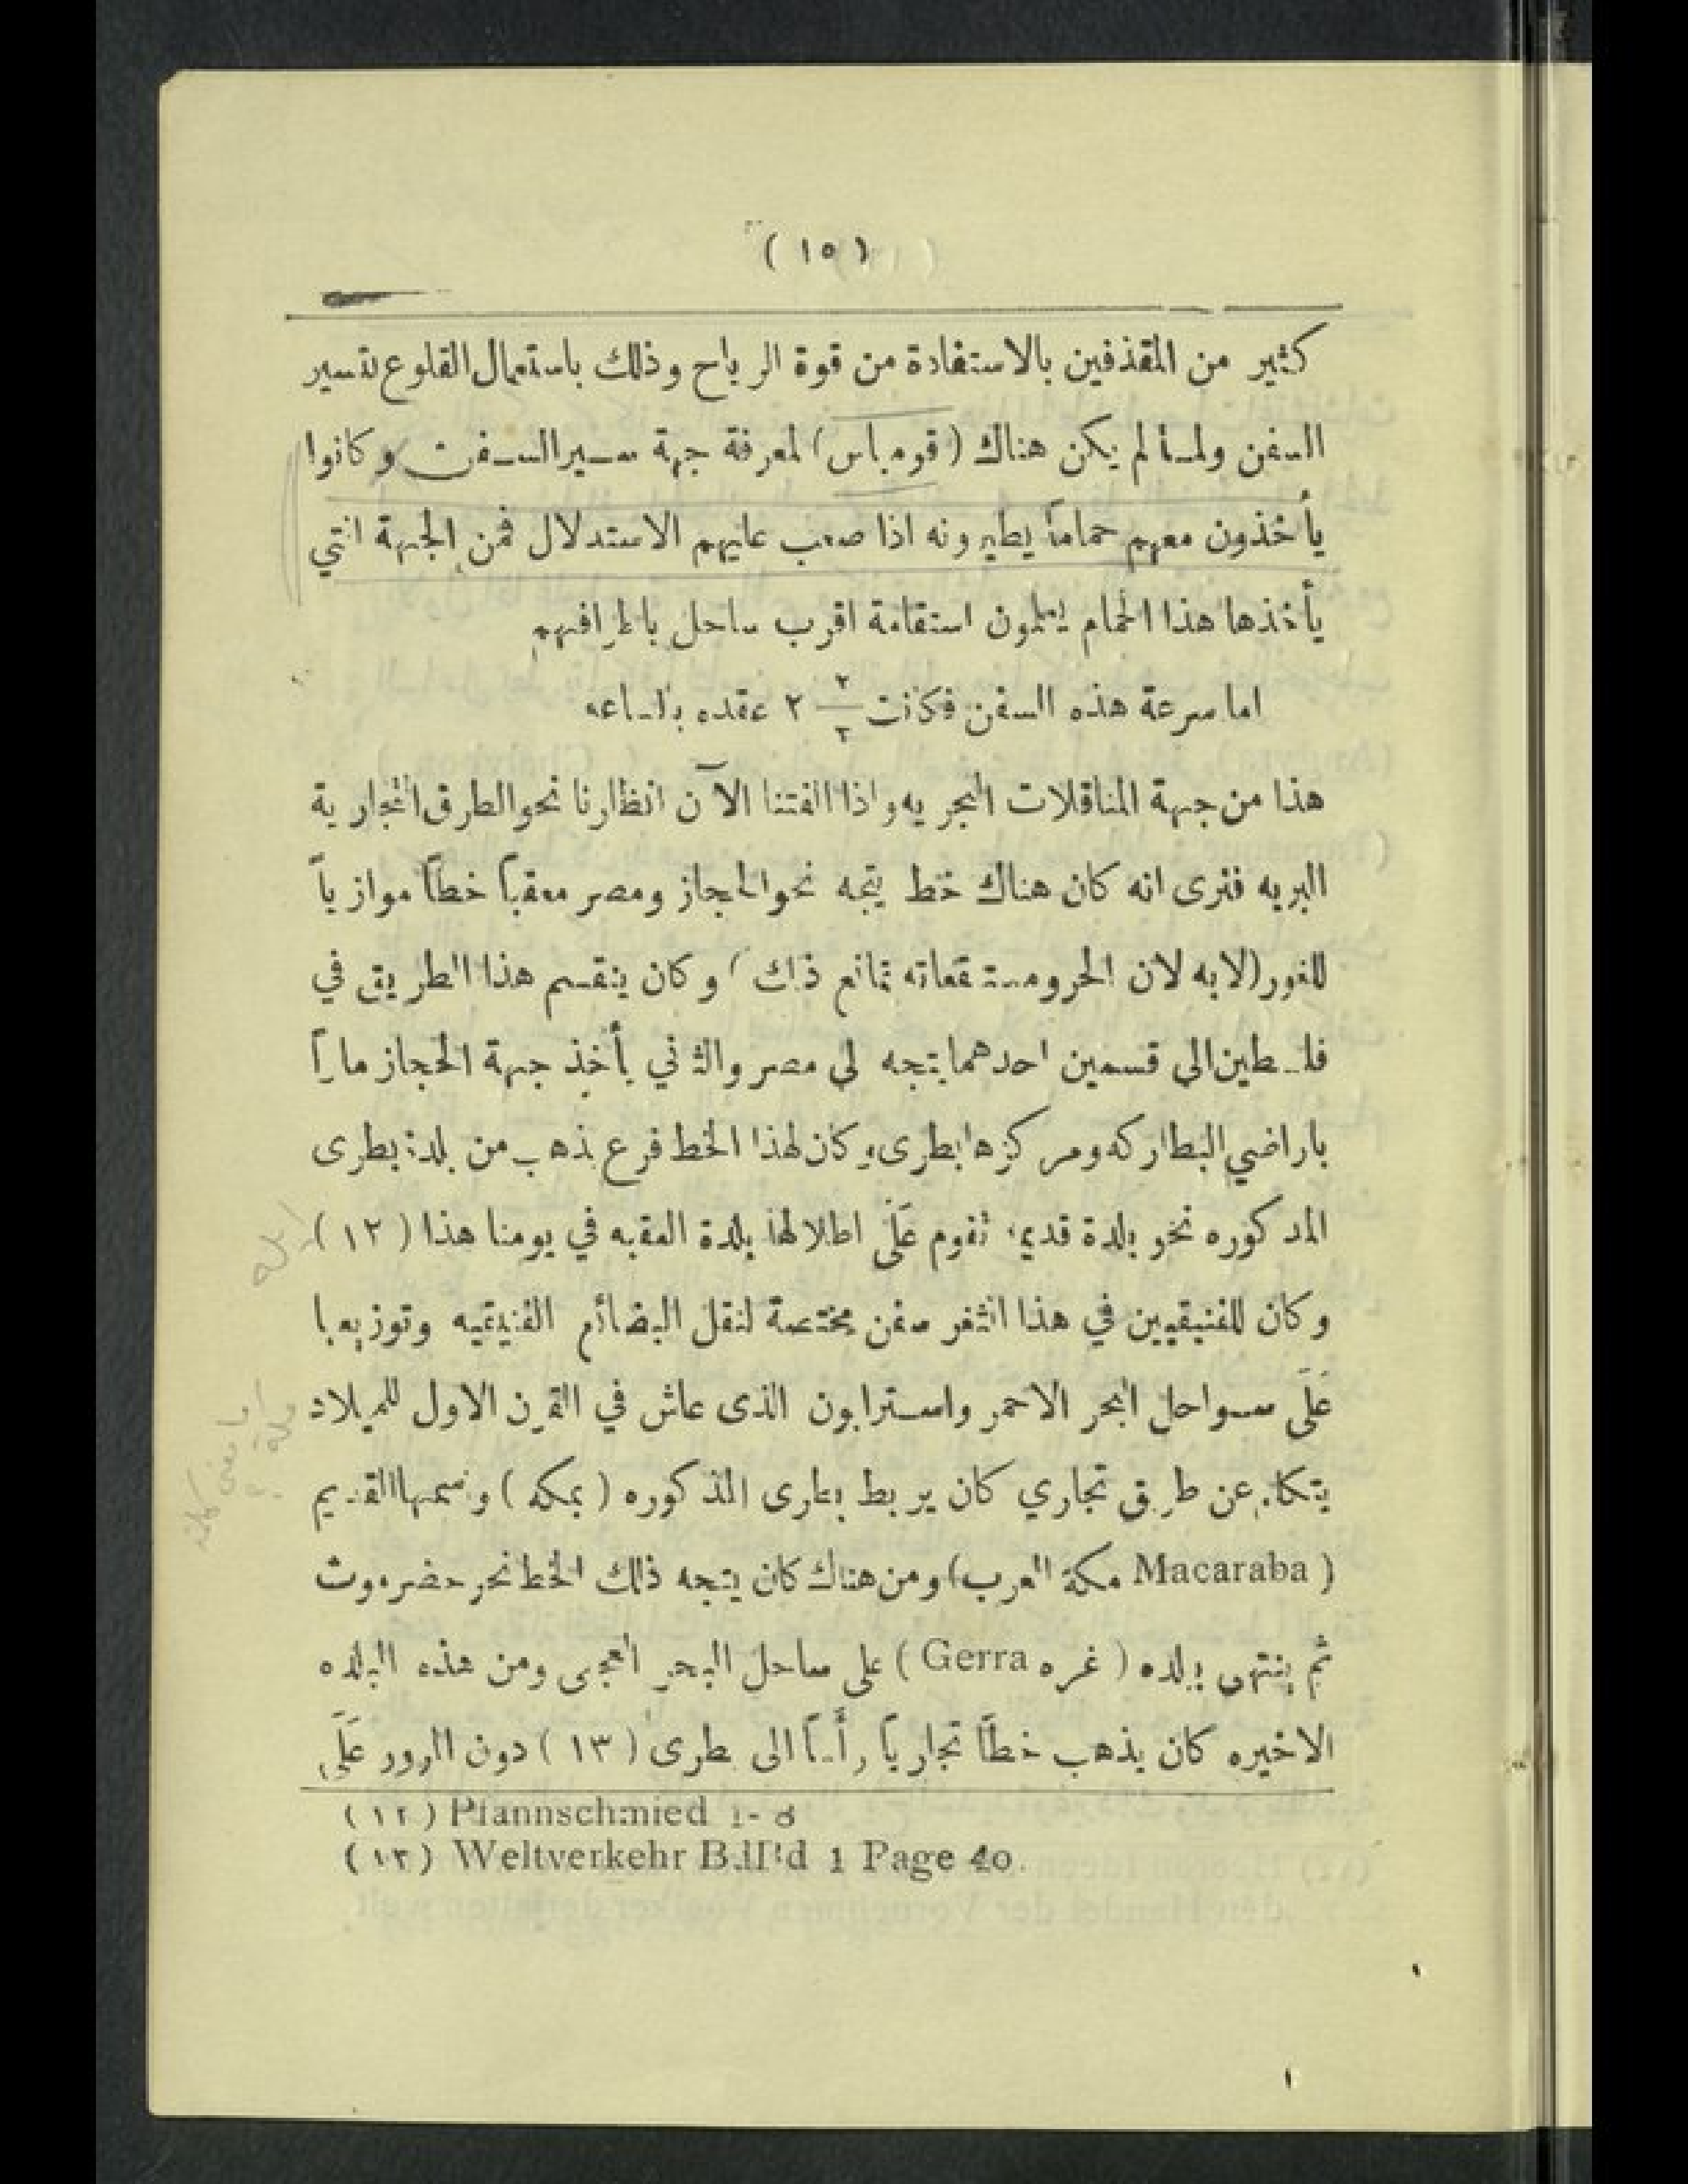 ( ١٥ )
كثير من المقذفين بالاستفادة من قوة الرياح وذلك باستعمال القلوع بتسيير
السفن ولما لم يكن هناك (قومباس) لمعرفة جهة سير السفن وكانوا
يأخذون معهم حماماً يطيرونه اذا صعب عليهم الاستدلال فمن الجهة التي
يأخذها هذا الحمام يعلمون استقامة اقرب ساحل باطرافهم
اما سرعة هذه السفن فكانت ٢ عقده بالساعه
هذا من جهة المناقلات البحريه واذا الفتنا الآن انظارنا نحو الطرق التجارية
البريه فنرى انه كان هناك خط يتجه نحو الحجاز ومصر معقباً خطاً موازياً
للغور (لابه لان الحر ومستنقعاته تمانع ذلك) وكان ينقسم هذا الطريق في
فلسطين الى قسمين احدهما يتجه الى مصر والثاني يأخذ جهة الحجاز ماراً
باراضي البطاركه ومركزها بطرى وكان لهذا الخط فرع يذهب من بلدة بطرى
المذكوره نحو بلدة قديمة تقوم عَلَى اطلالها بلدة العقبه في يومنا هذا ( ١٢ )
وكان للفنيقيين في هذا الثغر سفن مختصة لنقل البضائع الفنيقيه وتوزيعها
عَلَى سواحل البحر الاحمر واسترابون الذى عاش في القرن الاول للميلاد
يتكلم عن طريق تجاري كان يربط بطرى المذكوره ( بمكه ) وسمها القديم
( Macaraba مكة العرب) ومن هناك كان يتجه ذلك الخط نحو حضرموت
ثم ينتهى ببلده ( غره Gerra ) على ساحل البحر العجمى ومن هذه البلده
الاخيره كان يذهب خطاً تجارياً رأساً الى بطرى ( ١٣ ) دون المرور عَلَى
( ١٢ ) Pfannschmied 1- 8
( ١٣ ) Weltverkehr 1 Page 40.
ايله